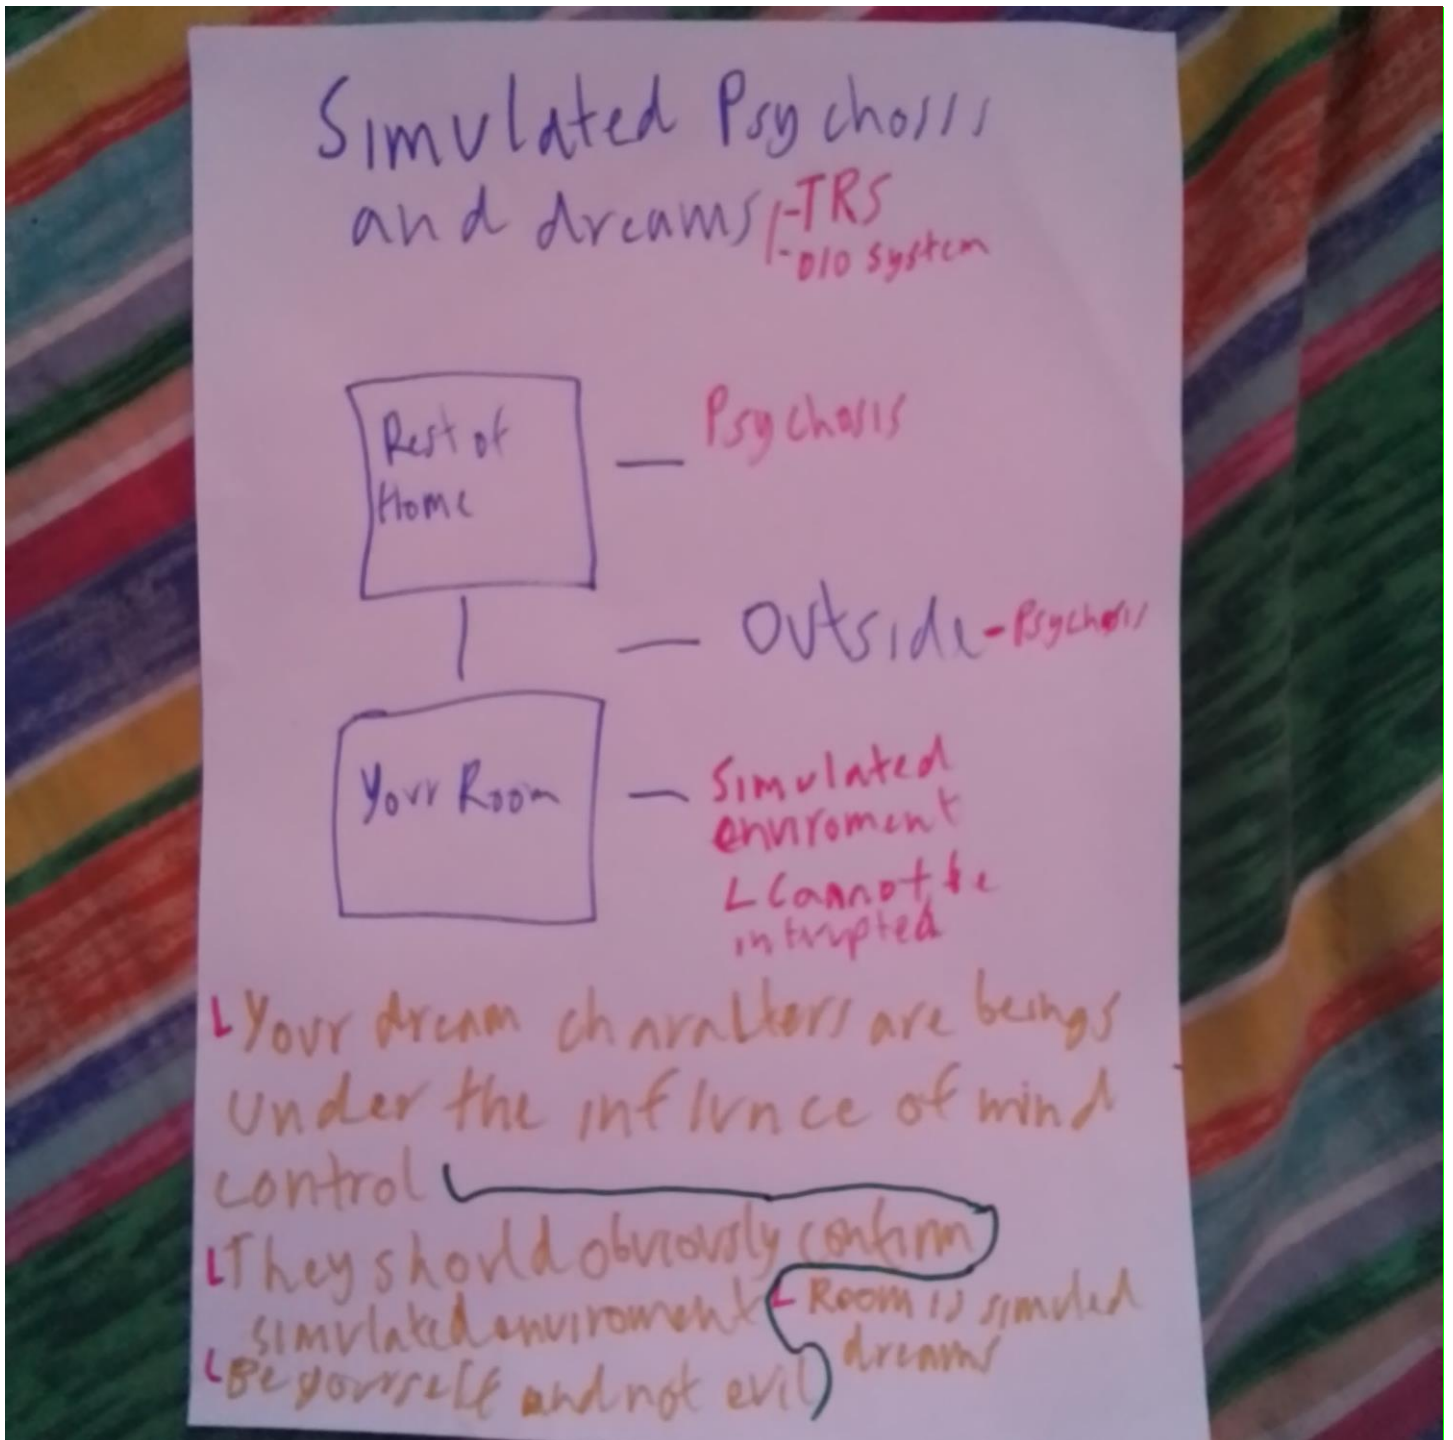 Simulated Psychosis
and dreams
-TRS
-DIO system
Rest of
Home
Psychosis
Outside - Psychosis
Your Room
Simulated
enviroment
L Cannot be
intrupted
L Your dream charatters are beings
under the influnce of mind
control
L They should obviously confirm
simulated enviroment
L Room is simuled
dreams
L Be yourself and not evil